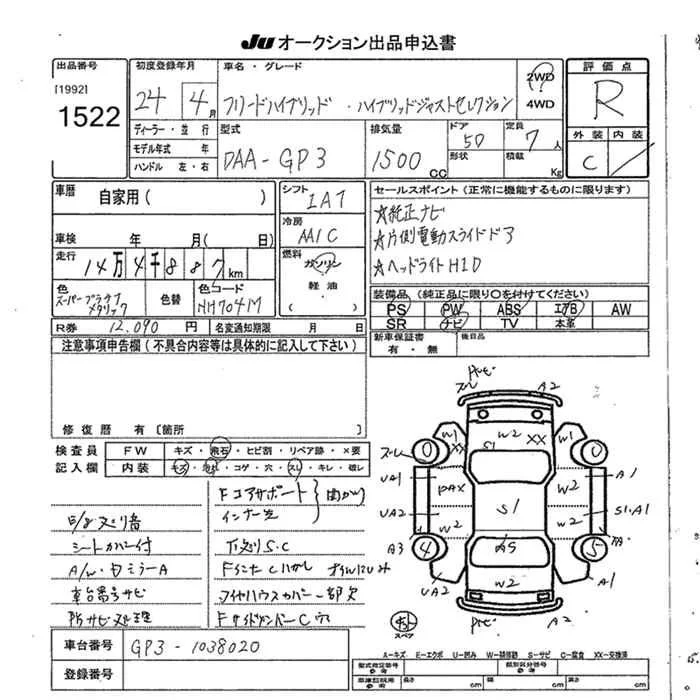 JU オークション出品申込書
出品番号
[1992]
1522
初度登録年月
24 4月
車名・グレード
フリードハイブリッド・ハイブリッドジャストセレクション
2WD
4WD
評価点
R
外装 内装
C
ディーラー・並行
モデル年式 年
ハンドル 左・右
型式
DAA-GP3
排気量
1500cc
ドア
5D
形状
定員
7人
積載
Kg
車歴
自家用( )
車検 年 月( 日)
走行
14万4千887km
色
スーパープラチナメタリック
色替
色コード
NH704M
シフト
IAT
冷房
AAC
燃料
ガソリン
軽油
( )
セールスポイント(正常に機能するものに限ります)
★純正ナビ
★片側電動スライドドア
★ヘッドライトHID
装備品(純正品に限り○を付けてください)
PS PW ABS エアB AW
SR ナビ TV 本革
新車保証書
有・無
後日品
R券 12,090円
名変通知期限 月 日
注意事項申告欄(不具合内容等は具体的に記入して下さい)
修復歴 有〔箇所 〕
検査員
記入欄
FW キズ・飛石・ヒビ割・リペア跡・×要
内装 キズ・汚れ・コゲ・穴・スレ・キレ・破レ
Fコアサポート
インナー左
曲がり
シートカバー付
下廻りS.C
車台番号サビ
タイヤハウスカバー一部欠
防サビ処理
車台番号
GP3-1038020
登録番号
W2 XX
S1
W1 XX
W1
0
0
UA1
UA2
A3
W2
W2
W2
S1
A1
S1.A1
4
5
A1
W2
A2
A2
スペア
A-キズ E-エクボ U-凹み W-補修跡 S-サビ C-腐食 XX-交換済
型式指定番号
参考
類別区分番号
参考
長さ cm
幅 cm
高さ cm